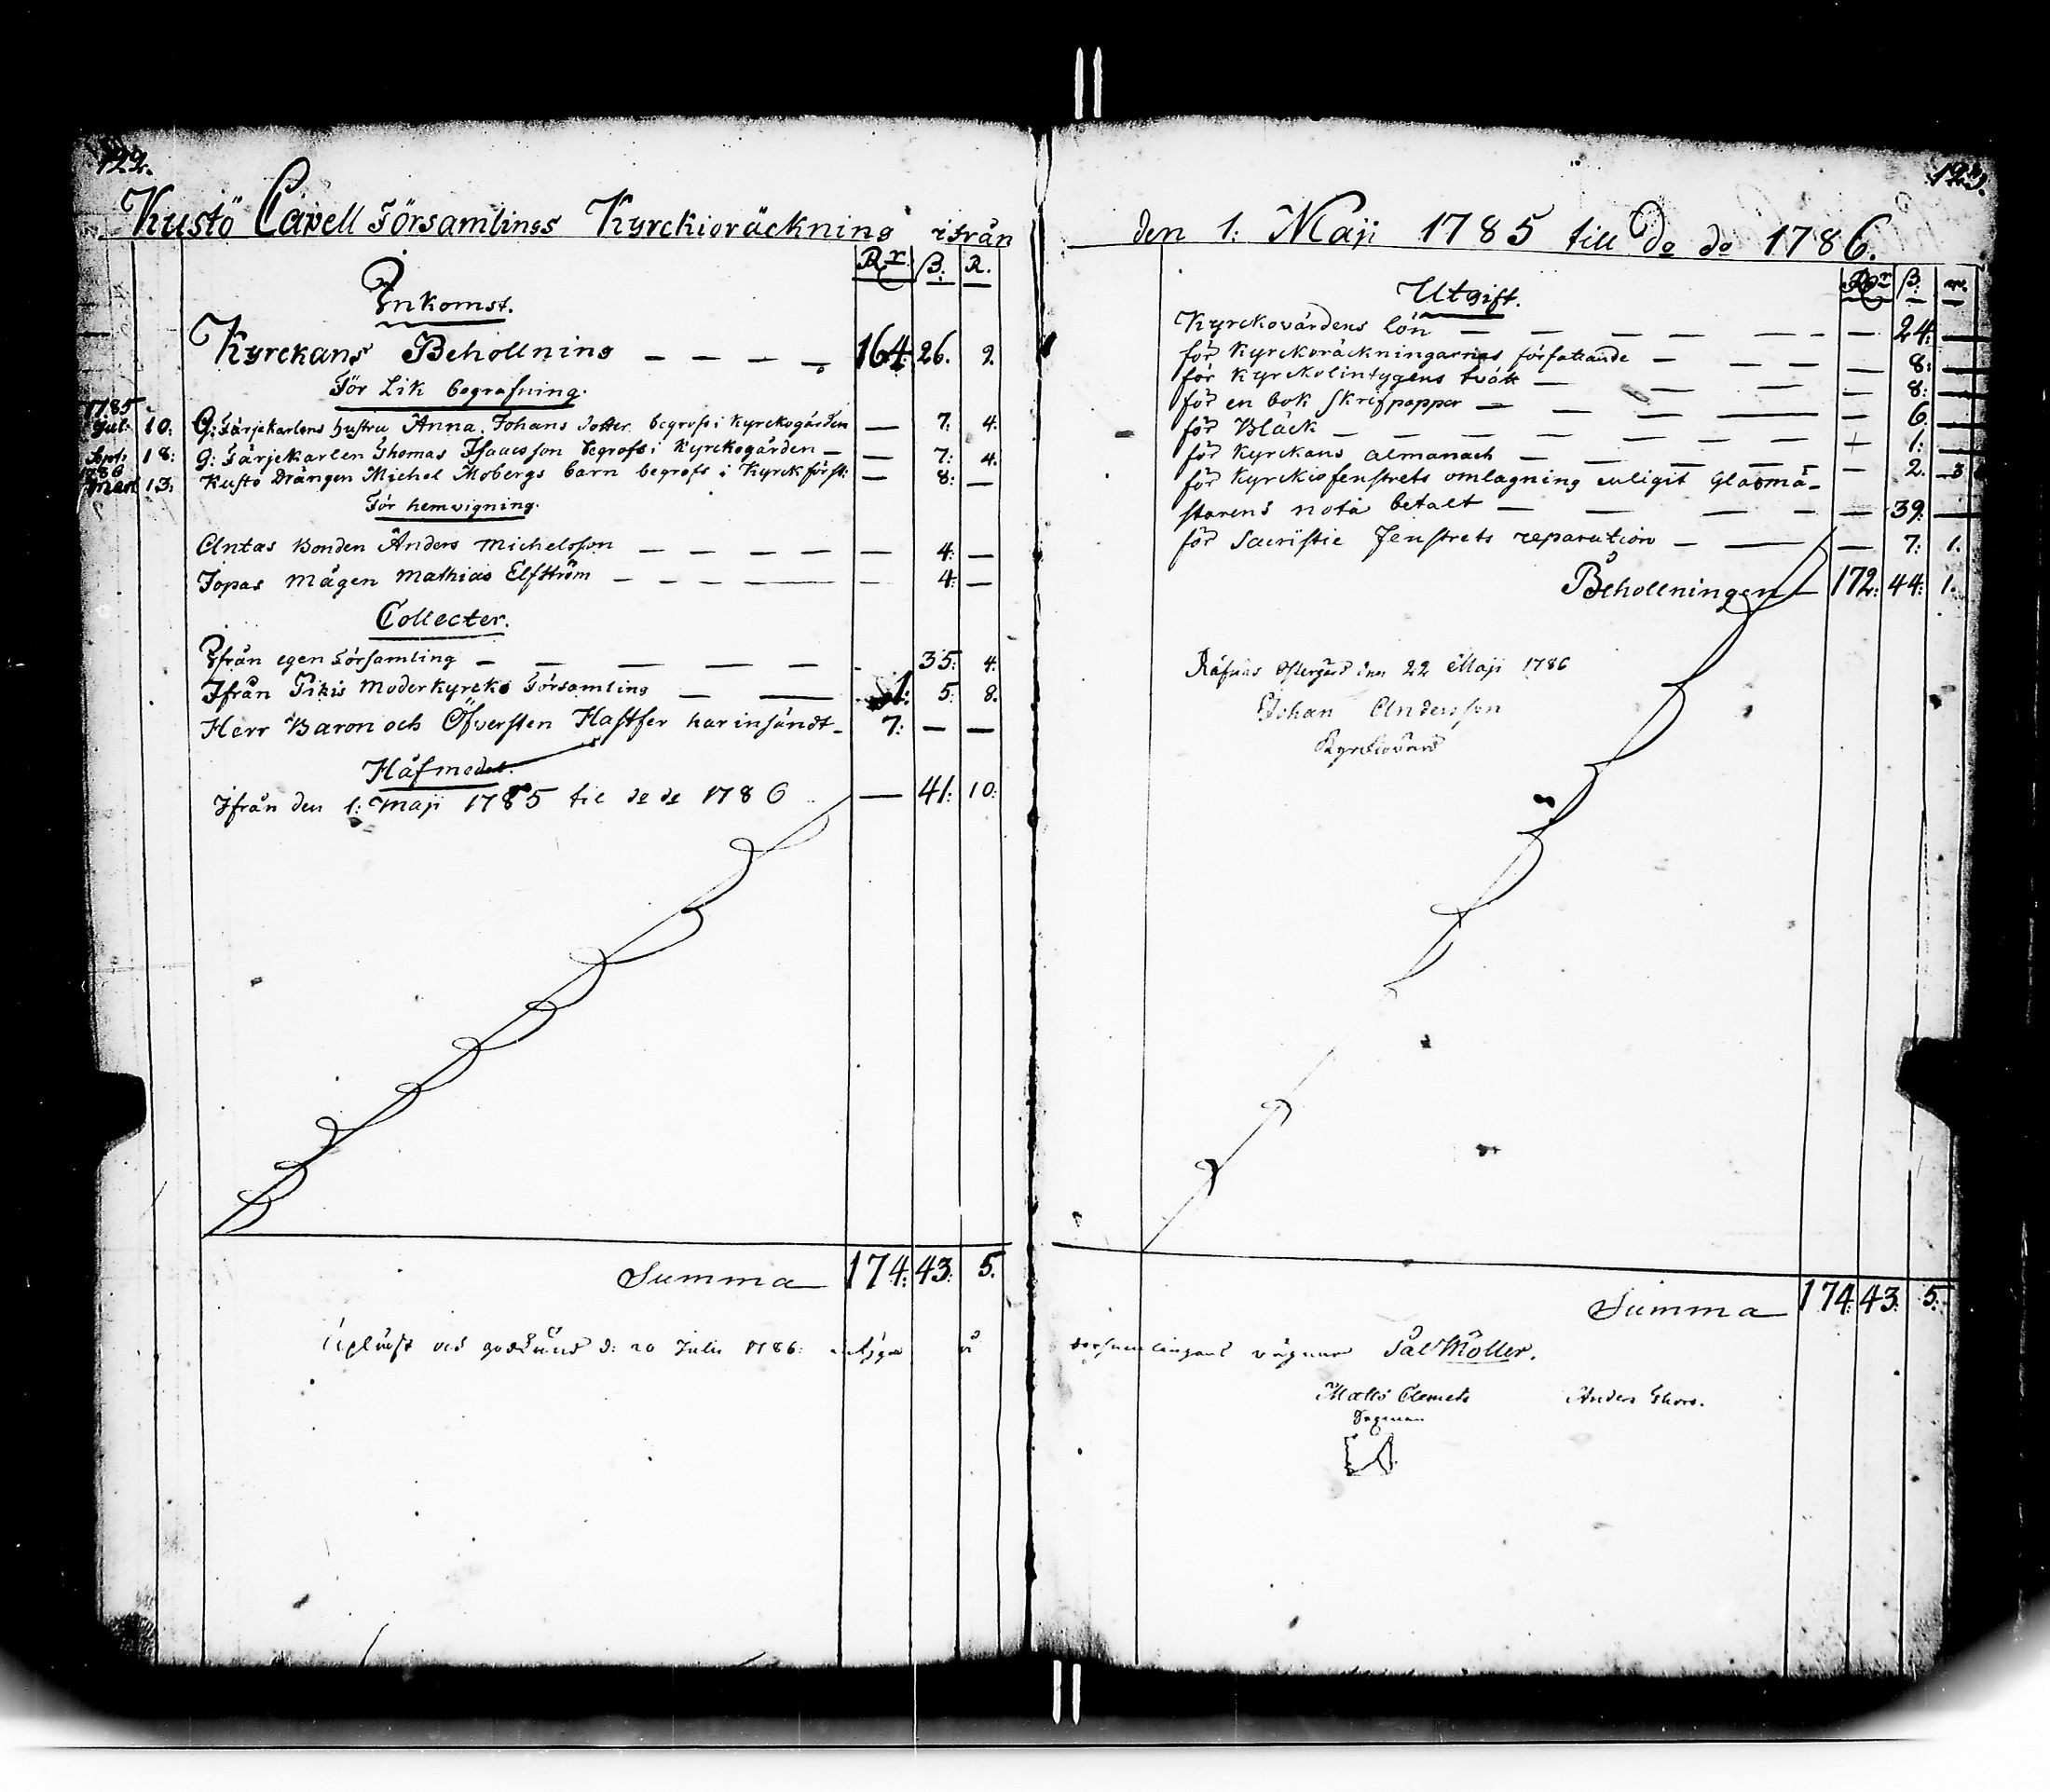 122.
Kustö Capell Församlings Kyrckioräckning ifrån
Rr ß: R.
Inkomst.
Kyrckans Behollning 164: 26. 9.
För Lik begrafning.
1785
Jul: 10: G: Färjekarlens hustru Anna Johans dotter begrofs i Kyrckogården — 7: 4.
Sept: 18: G: Färjekarlen Thomas Isaacsson begrofs i Kyrckogården — 7: 4.
1786
Mart 13: Kustö Drängen Michel Mobergs barn begrofs i Kyrck först: — 8: —
För hemvigning.
Antas Bonden Anders Michelsson — 4: —
Jopas Mågen Mathias Elfström — 4: —
Collecter.
Ifrån egen Församling — 35: 4.
Ifrån Pikis Moderkyrcko Församling 1: 5: 8.
Herr Baron och Öfversten Hastfer har insändt 7: — —
Håfmedel.
Ifrån den 1: Maji 1785 til de de 1786 — 41: 10:
Summa 174: 43: 5.
Upläst och godkänd d: 20 Julii 1786: å
123.
den 1: Maji 1785 till do do 1786.
Rr ß: r.
Utgift.
Kyrckovärdens lön — 24: —
för Kyrckoräckningarnas författande — 8: —
för Kyrckolintygens tvätt — 8: —
för en bok Skrifpapper — 6. —
för Bläck — 1: —
för Kyrckans almanach — 2. 3
för Kyrckiofenstrets omlagning enligit Glasmä-
starens nota betalt — 39: —
för Sacristie fenstrets reparation — 7: 1.
Behollningen 172: 44: 1.
Räfnäs Östergård den 22 Maji 1786
Johan Andersson
Kyrckiovärd
Summa 174: 43: 5.
församlingens vägnar Sal Möller.
Matts Clemets Anders Thors.